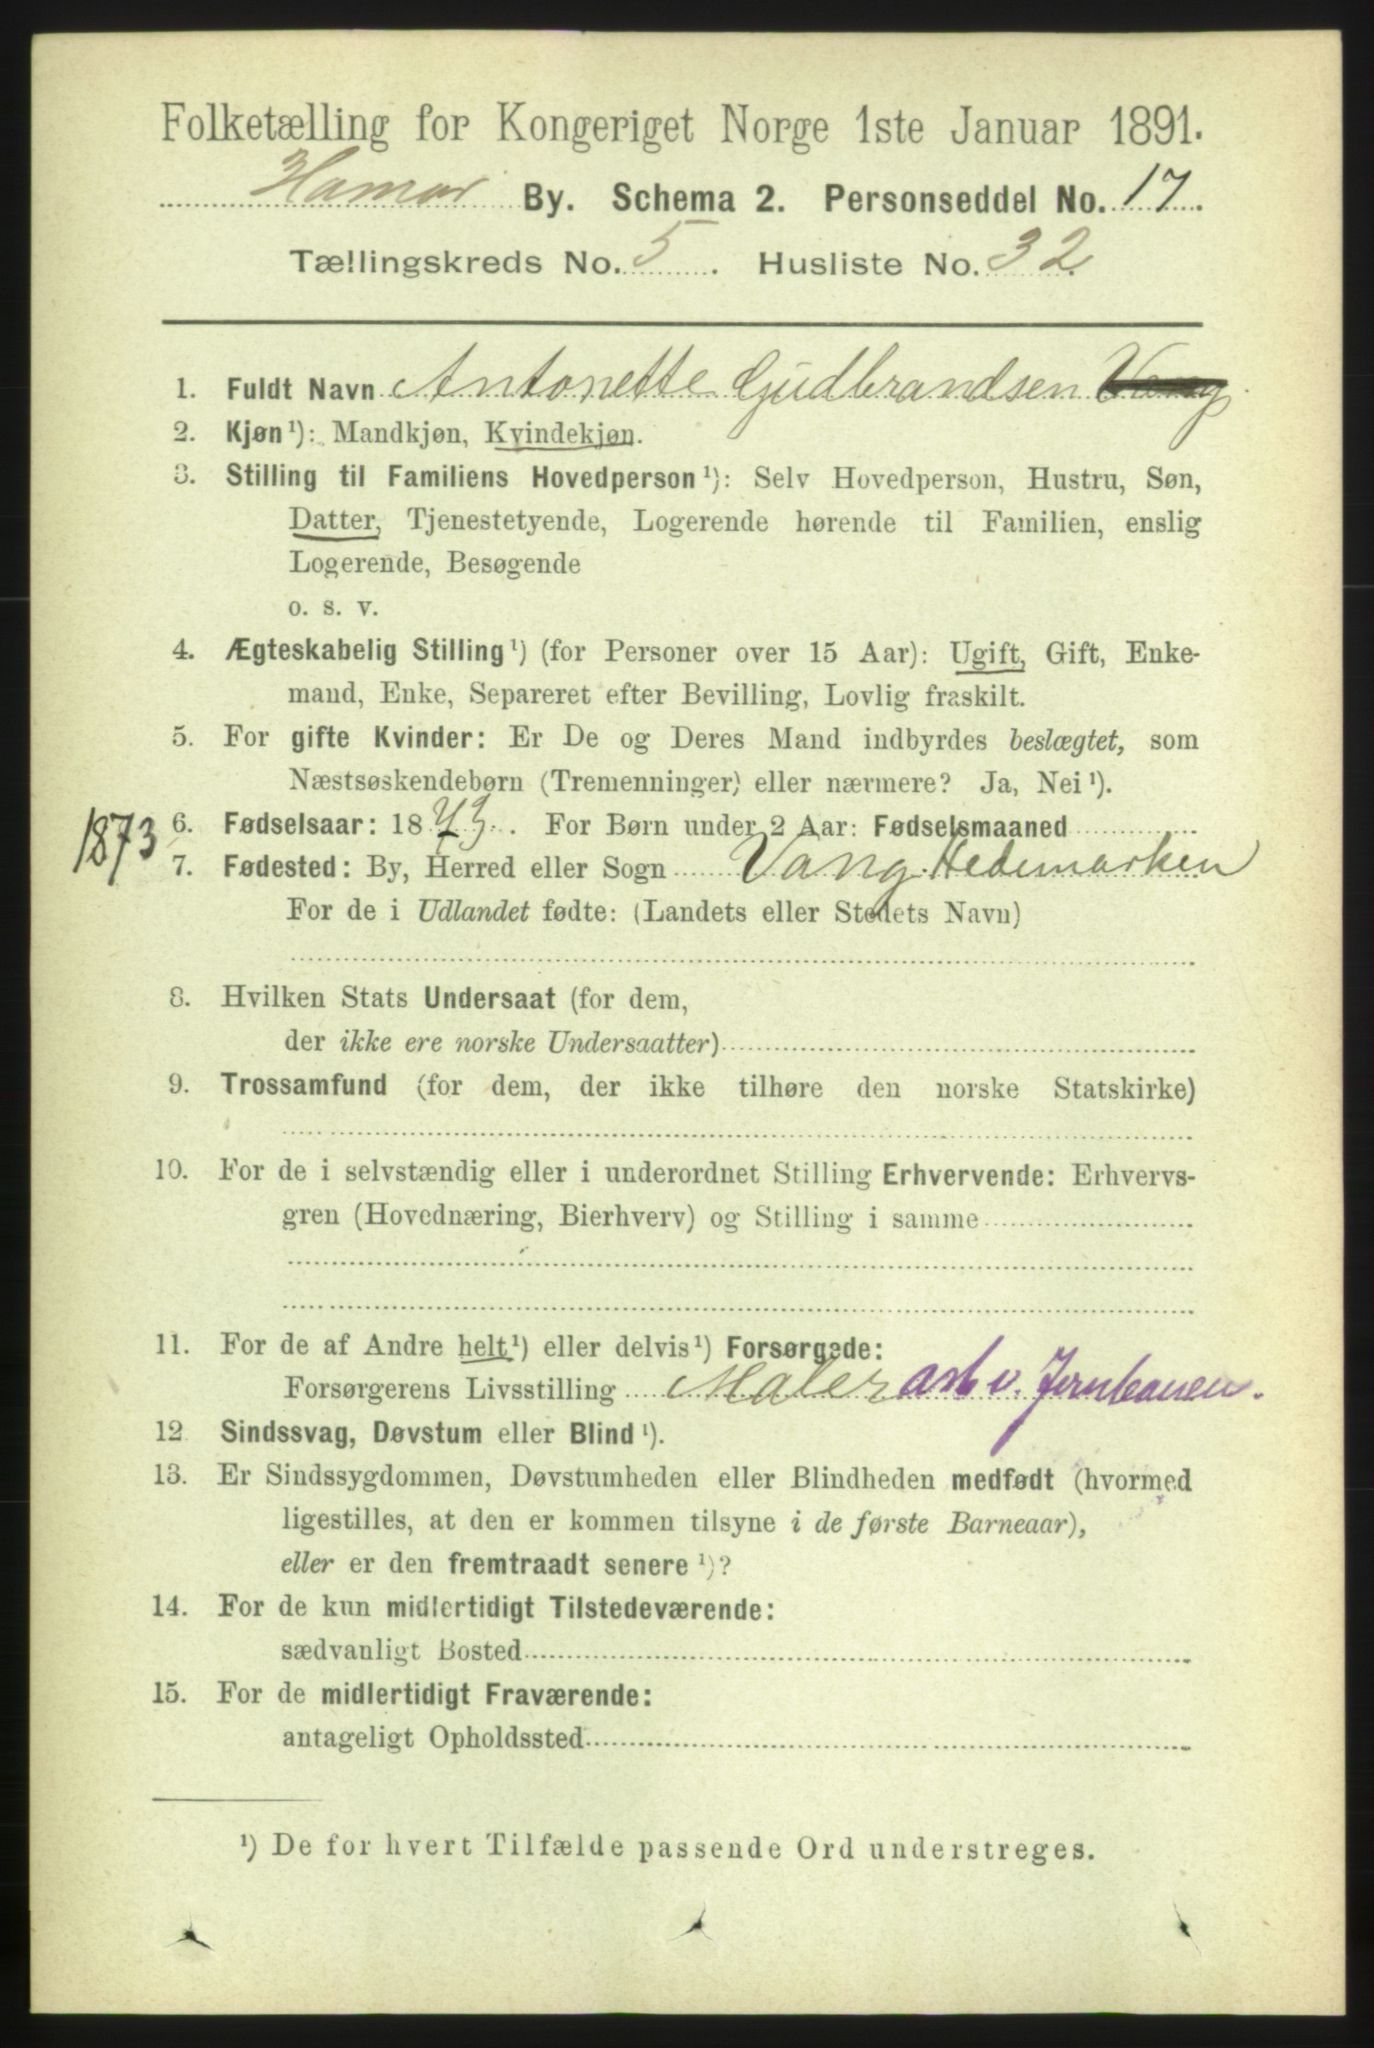 Folketælling for Kongeriget Norge 1ste Januar 1891.
Hamar By. Schema 2. Personseddel No. 17.
Tællingskreds No. 5. Husliste No. 32.
1. Fuldt Navn Antonette Gudbrandsen Vang
2. Kjøn¹): Mandkjøn, Kvindekjøn.
3. Stilling til Familiens Hovedperson¹): Selv Hovedperson, Hustru, Søn,
Datter, Tjenestetyende, Logerende hørende til Familien, enslig
Logerende, Besøgende
o. s. v.
4. Ægteskabelig Stilling¹) (for Personer over 15 Aar): Ugift, Gift, Enke-
mand, Enke, Separeret efter Bevilling, Lovlig fraskilt.
5. For gifte Kvinder: Er De og Deres Mand indbyrdes beslægtet, som
Næstsøskendebørn (Tremenninger) eller nærmere? Ja, Nei¹).
1873 6. Fødselsaar: 1873. For Børn under 2 Aar: Fødselsmaaned
7. Fødested: By, Herred eller Sogn Vang. Hedemarken
For de i Udlandet fødte: (Landets eller Stedets Navn)
8. Hvilken Stats Undersaat (for dem,
der ikke ere norske Undersaatter)
9. Trossamfund (for dem, der ikke tilhøre den norske Statskirke)
10. For de i selvstændig eller i underordnet Stilling Erhvervende: Erhvervs-
gren (Hovednæring, Bierhverv) og Stilling i samme
11. For de af Andre helt¹) eller delvis¹) Forsørgede:
Forsørgerens Livsstilling Maler arb v. Jernbanen.
12 Sindssvag, Døvstum eller Blind¹).
13. Er Sindssygdommen, Døvstumheden eller Blindheden medfødt (hvormed
ligestilles, at den er kommen tilsyne i de første Barneaar),
eller er den fremtraadt senere¹)?
14. For de kun midlertidigt Tilstedeværende:
sædvanligt Bosted
15. For de midlertidigt Fraværende:
antageligt Opholdssted
¹) De for hvert Tilfælde passende Ord understreges.